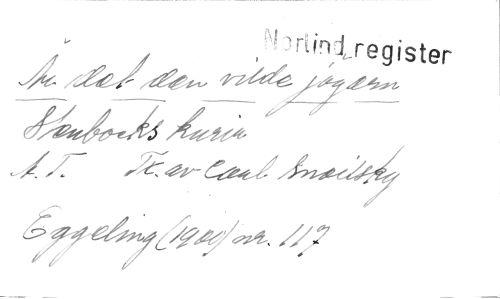 Norlind, register
Är det den vilde jägarn
Stenbocks kurir
A. T. Tk. av Carl Snoilsky
Eggeling (1900) nr. 117